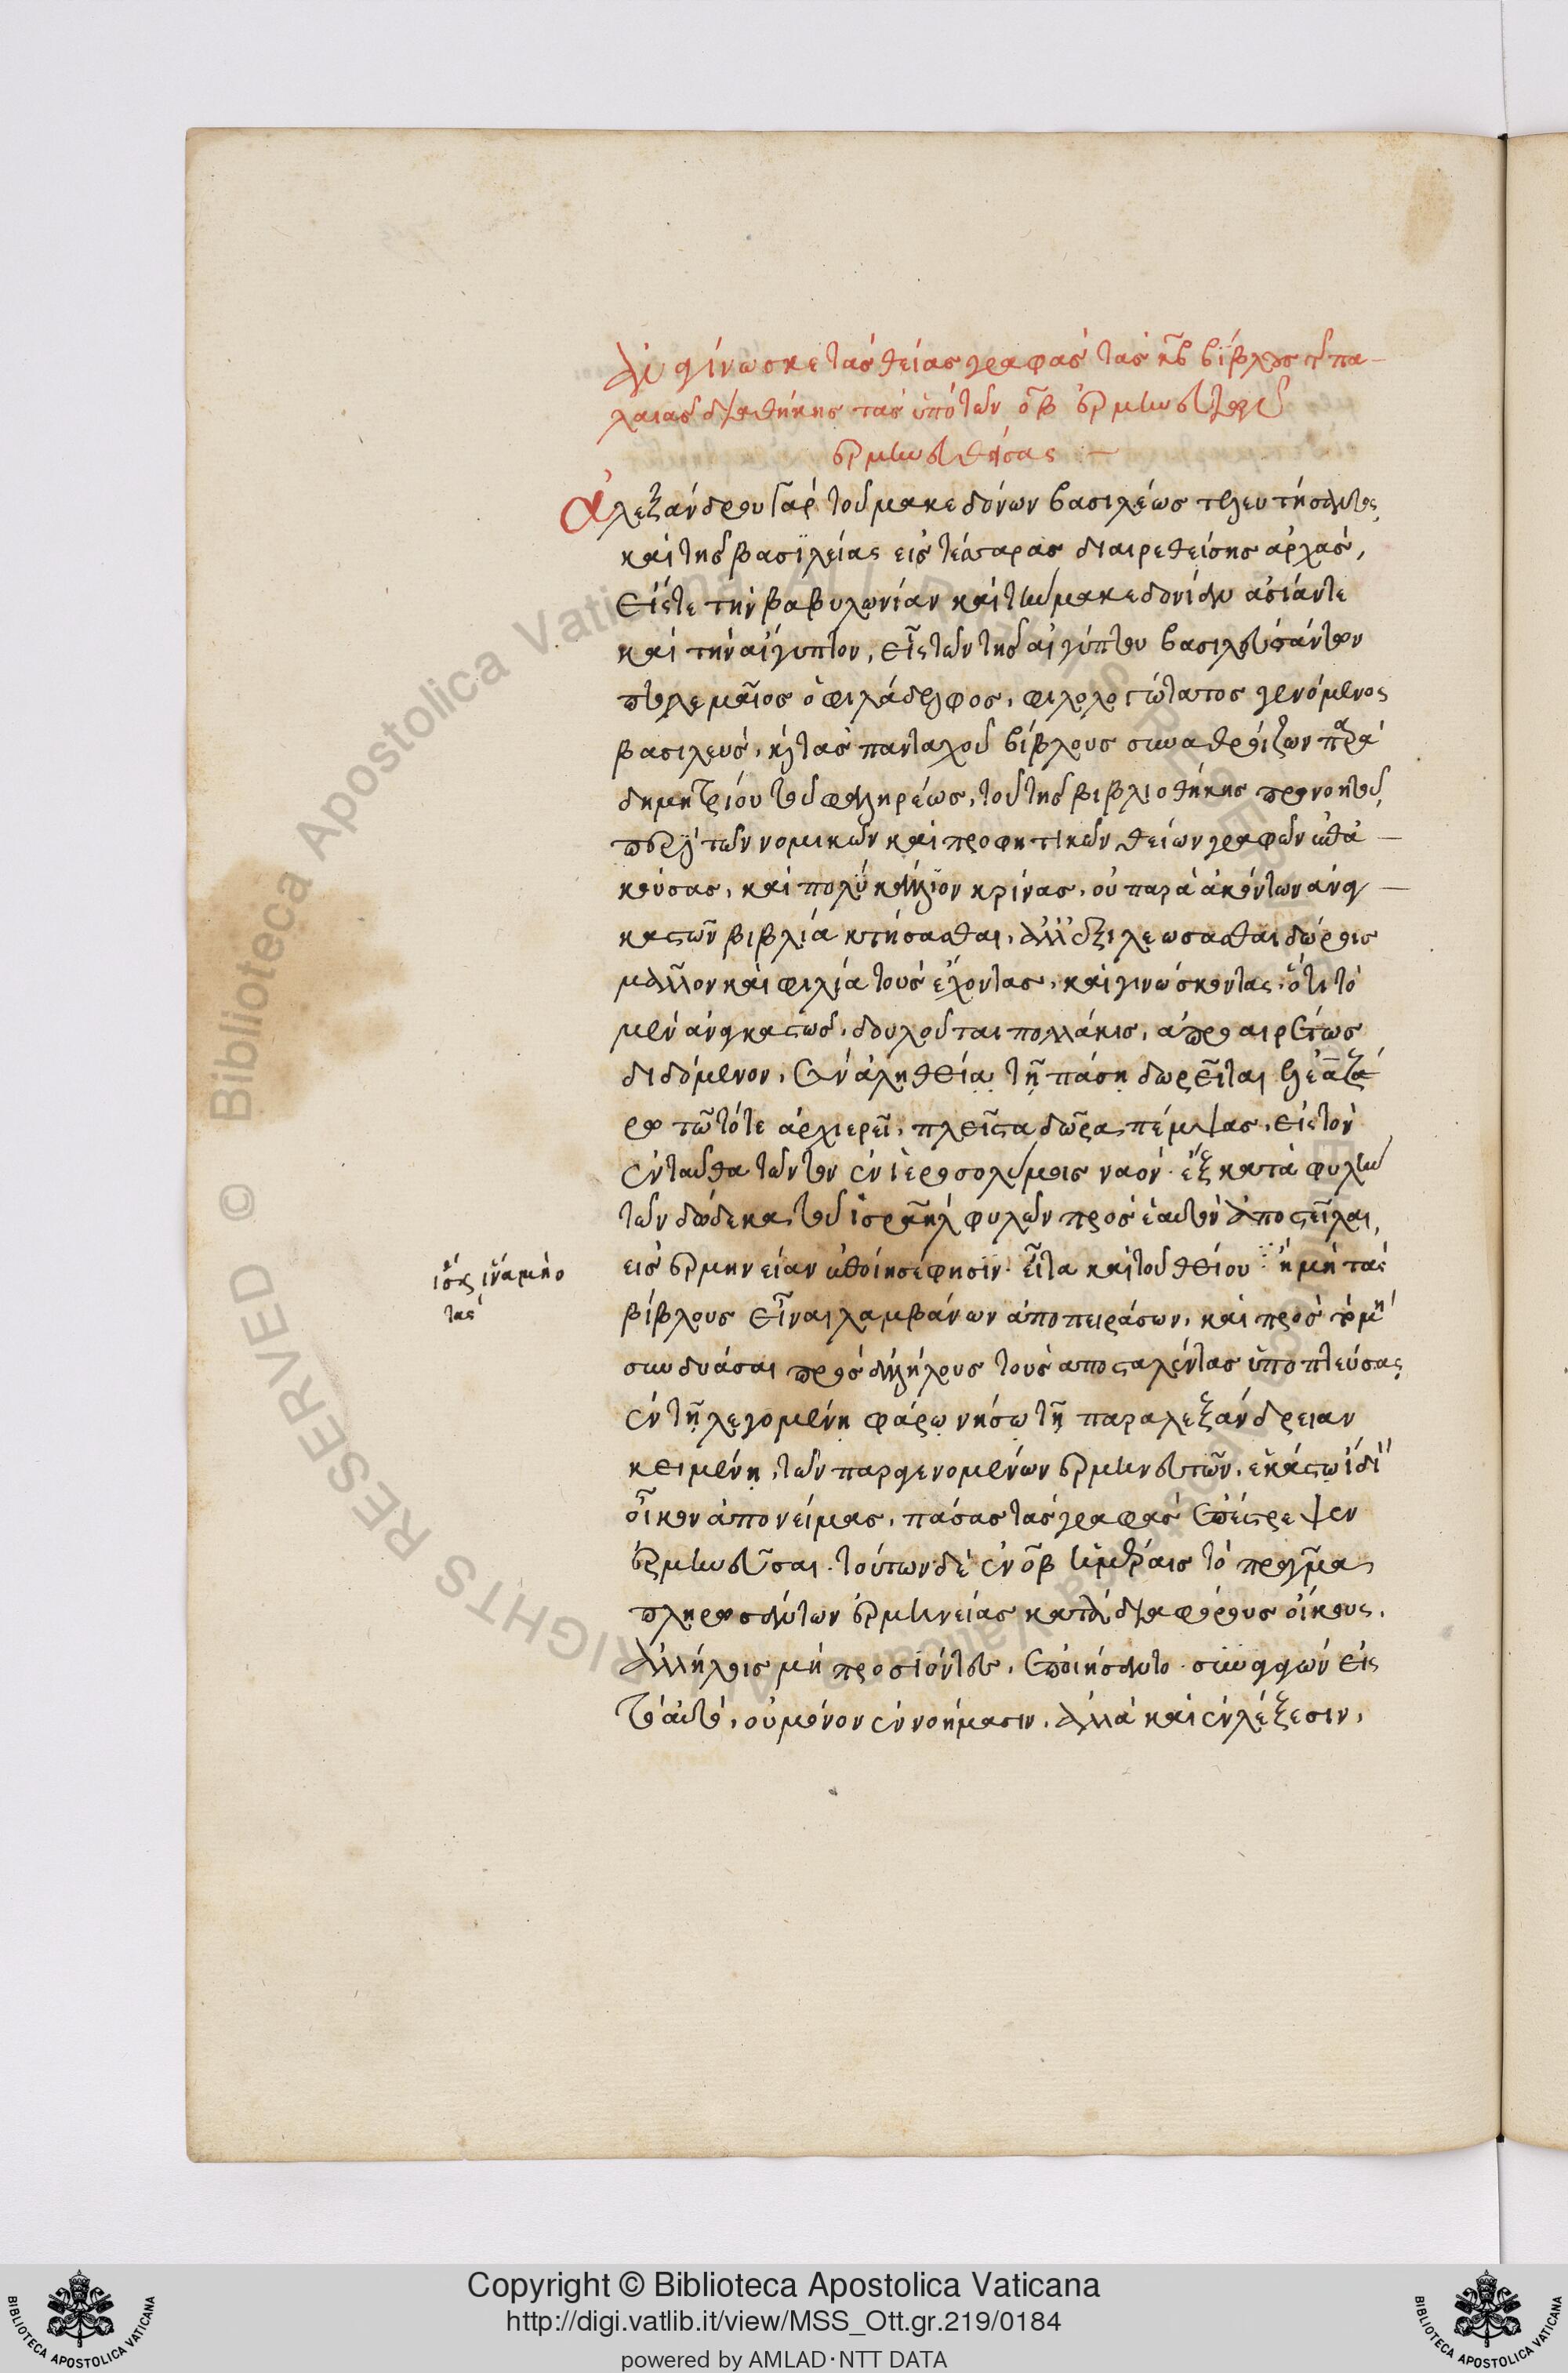 ἀναγίνωσκε τὰς θείας γραφὰς τὰς κβ βίβλους τῆς πα-
λαιᾶς διαθήκης τὰς ὑπὸ τῶν οβ ἑρμηνευτῶν
ἑρμηνευθείσας
Ἀλεξάνδρου γὰρ τοῦ μακεδόνων βασιλέως τελευτήσαντος
καὶ τῆς βασιλείας εἰς τέσσαρας διαιρεθείσης ἀρχάς,
εἴς τε τὴν βαβυλωνίαν καὶ τὴν μακεδονίαν ἀσίαν τε
καὶ τὴν αἴγυπτον, εἷς τῶν τῆς αἰγύπτου βασιλευσάντων
πτολεμαῖος ὁ φιλάδελφος, φιλολογώτατος γενόμενος
βασιλεύς, καὶ τὰς πανταχοῦ βίβλους συναθροίζων παρὰ
δημητρίου τοῦ φαληρέως, τοῦ τῆς βιβλιοθήκης προνοητοῦ,
περὶ τῶν νομικῶν καὶ προφητικῶν θείων γραφῶν
κούσας, καὶ πολὺ κάλλιον κρίνας, οὐ παρὰ ἀκόντων ἀναγ
καστῶν βιβλία κτήσασθαι, ἀλλ' ἐξιλεώσασθαι δώροις
μᾶλλον καὶ φιλία τοὺς ἔχοντας, καὶ γινώσκοντας, ὅτι τὸ
μὲν ἀναγκαστῶς, δουλοῦται πολλάκις, ἀπροαιρέτως
διδόμενον, ἐν ἀληθεία τῇ πάσῃ δωρεῖται ἐλεαζά
ρω τῶ τότε ἀρχιερεῖ, πλεῖστα δῶρα πέμψας, εἰς τὸν
ἐνταῦθα τῶν ἐν ἱεροσολύμοις ναὸν ἓξ κατὰ φυλὴν
τῶν δώδεκα τοῦ ἰσραὴλ φυλῶν πρὸς ἑαυτὸν ἀποστεῖλαι,
εἰς ἑρμηνείαν φησὶν εἶτα καὶ τοῦ θείου ἢ μὴ τὰς
βίβλους εἶναι λαμβάνων ἀποπειράσων, καὶ πρὸς
συνδυάσαι πρὸς ἀλλήλους τοὺς ἀποσταλέντας ὑποπτεύσας,
ἐν τῇ λεγομένῃ φάρῳ νήσῳ τῇ παραλεξάνδρειαν
κειμένῃ, τῶν παραγενομένων ἑρμηνευτῶν, ἑκάστῳ ἰδί
οἶκον ἀπονείμας, πάσας τὰς γραφὰς ἐπέτρεψεν
ἑρμηνεῦσαι. τούτων δὲ ἐν οβ ἡμέραις τὸ πρᾶγμα
πληρωσάντων ἑρμηνείας κατὰ διαφόρους οἴκους,
ἀλλήλοις μὴ προσιόντες, ἐποιήσαντο συναγαγὼν εἰς
τὸ αὐτὸ, οὐ μόνον ἐν νοήμασιν, ἀλλὰ καὶ ἐν λέξεσιν,
Copyright © Biblioteca Apostolica Vaticana
http://digi.vatlib.it/view/MSS_Ott.gr.219/0184
powered by AMLAD·NTT DATA
BIBLIOTECA APOSTOLICA VATICANA
BIBLIOTECA APOSTOLICA VATICANA
© Biblioteca Apostolica Vaticana